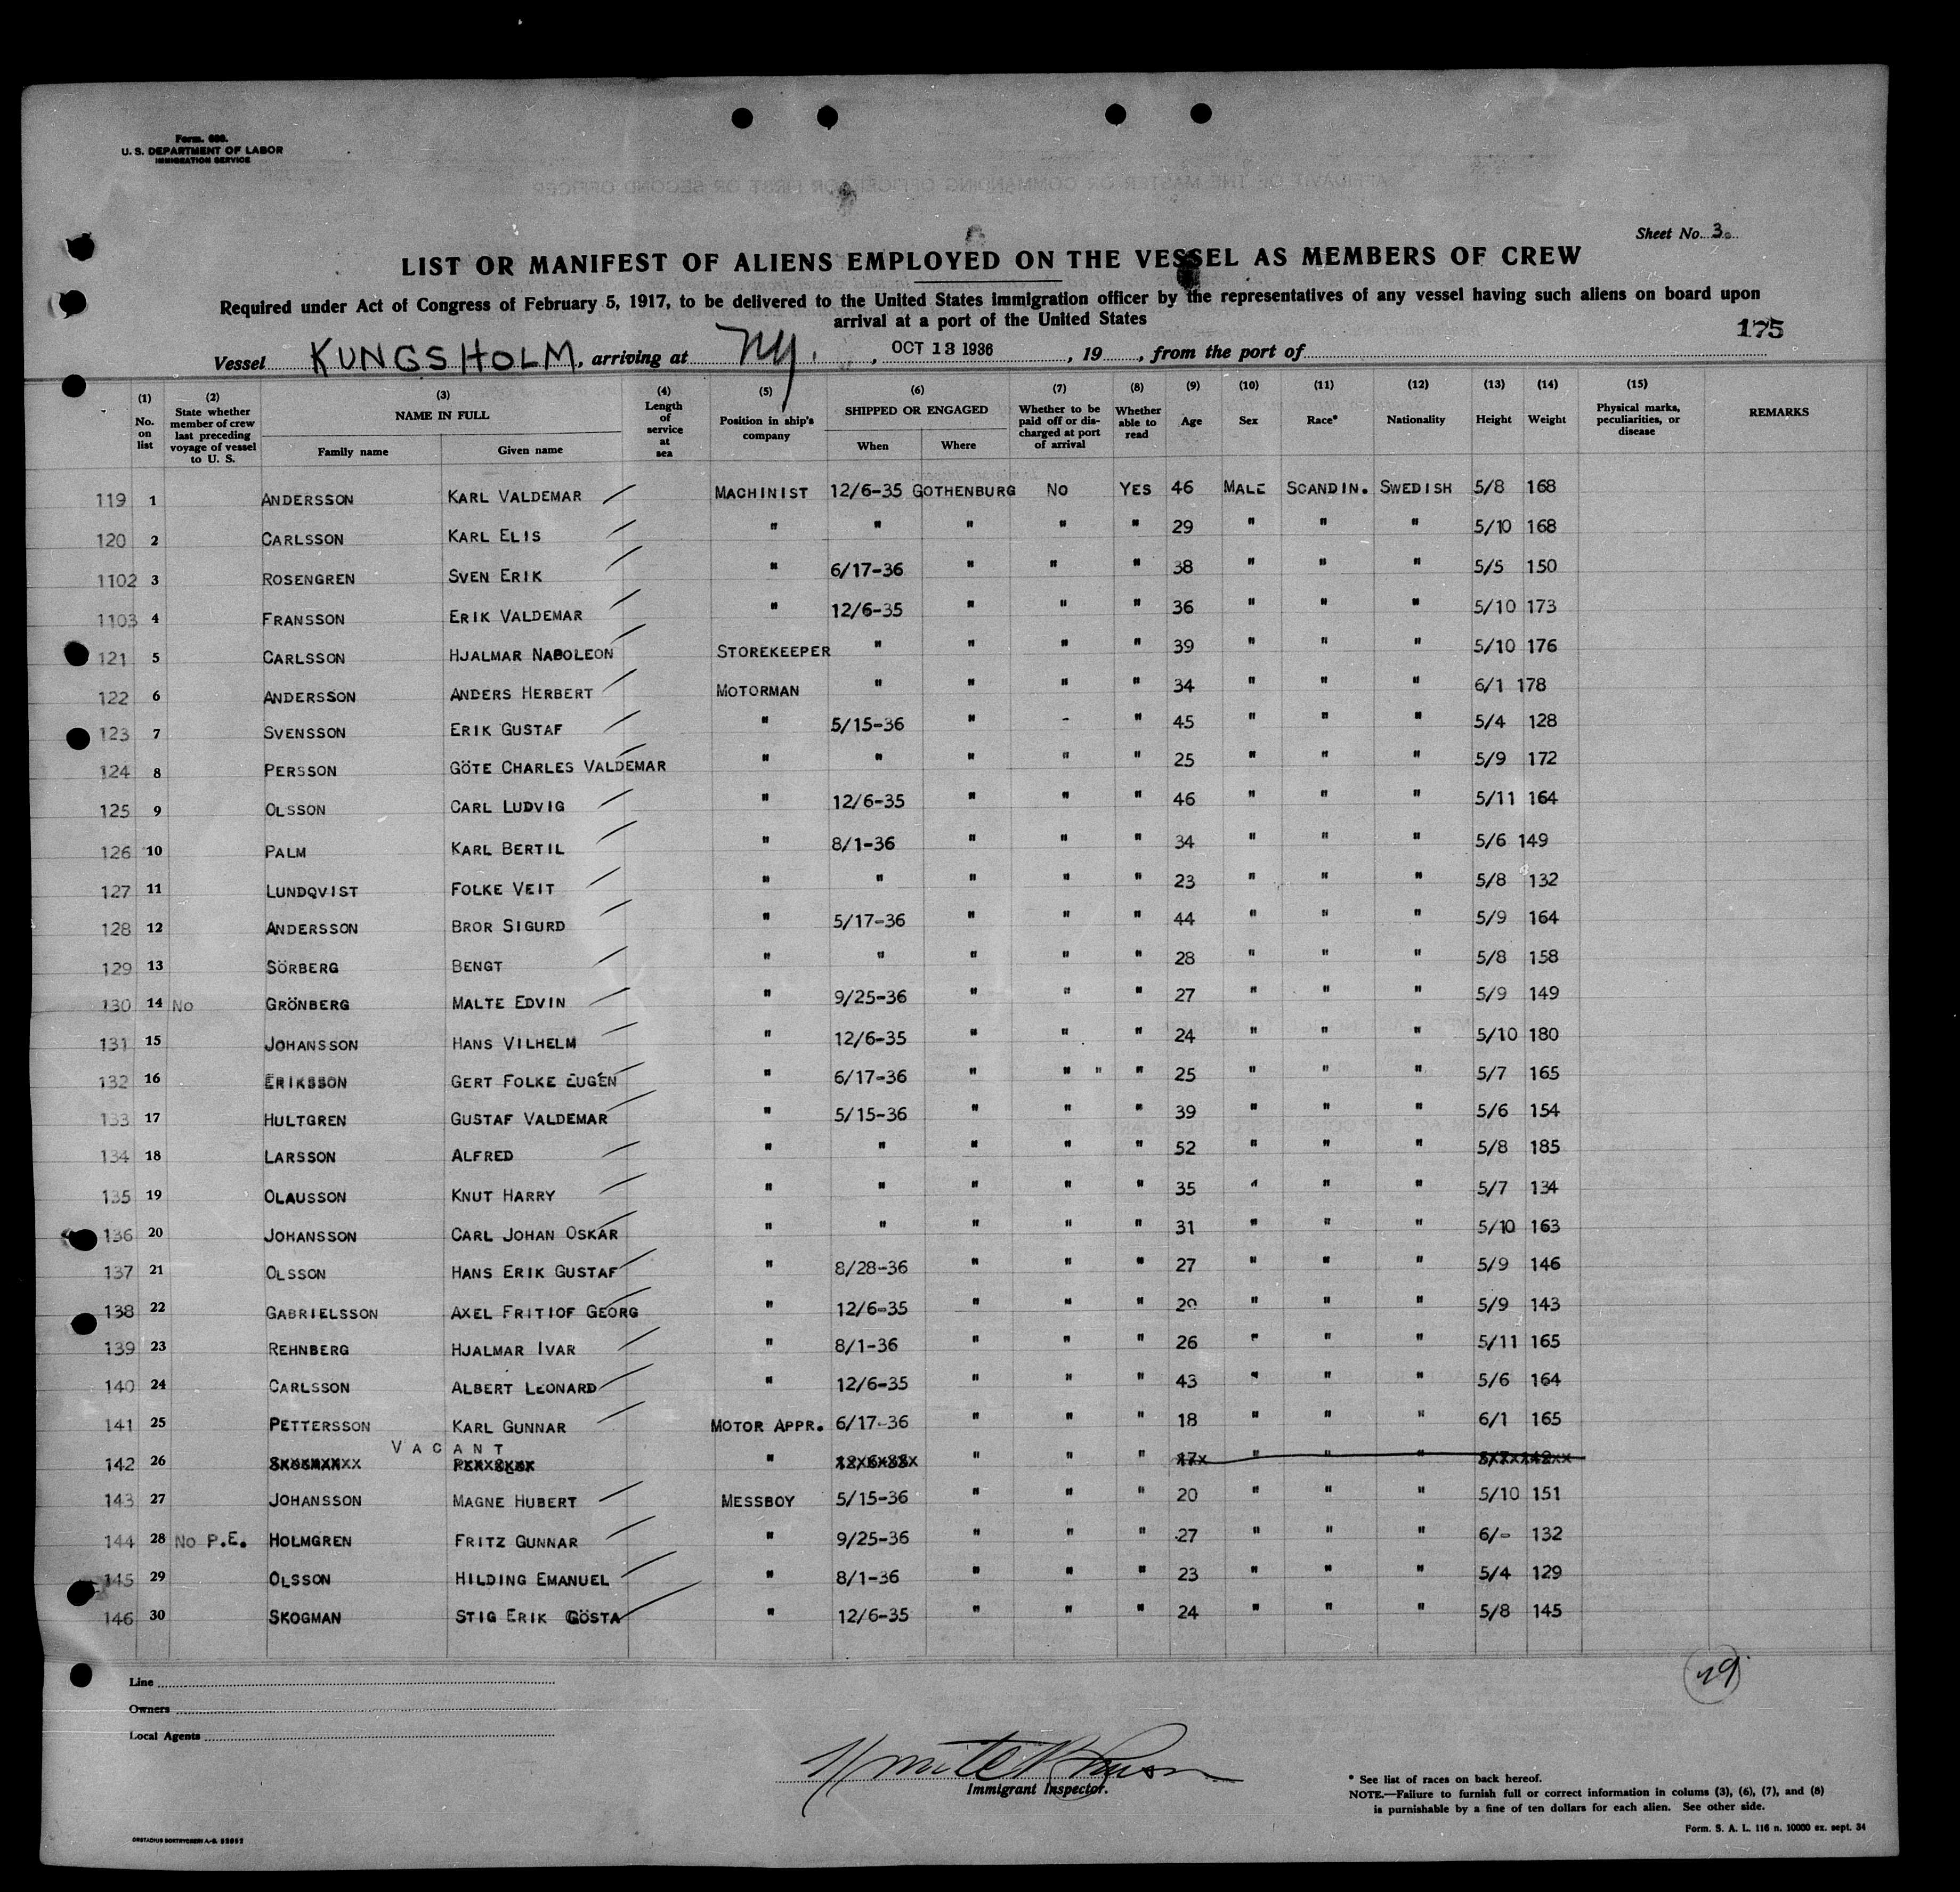 Form. 689.
U. S. DEPARTMENT OF LABOR
IMMIGRATION SERVICE
Sheet No. 3.
LIST OR MANIFEST OF ALIENS EMPLOYED ON THE VESSEL AS MEMBERS OF CREW
Required under Act of Congress of February 5, 1917, to be delivered to the United States immigration officer by the representatives of any vessel having such aliens on board upon
arrival at a port of the United States
175
Vessel KUNGSHOLM, arriving at NY. , OCT 13 1936 , 19 , from the port of
(1) No. on list (2) State whether member of crew last preceding voyage of vessel to U. S. (3) NAME IN FULL Family name Given name (4) Length of service at sea (5) Position in ship's company (6) SHIPPED OR ENGAGED When Where (7) Whether to be paid off or discharged at port of arrival (8) Whether able to read (9) Age (10) Sex (11) Race* (12) Nationality (13) Height (14) Weight (15) Physical marks, peculiarities, or disease REMARKS
119 1 ANDERSSON KARL VALDEMAR MACHINIST 12/6-35 GOTHENBURG NO YES 46 MALE SCANDIN. SWEDISH 5/8 168
120 2 CARLSSON KARL ELIS " " " " " 29 " " " 5/10 168
1102 3 ROSENGREN SVEN ERIK " 6/17-36 " " " 38 " " " 5/5 150
1103 4 FRANSSON ERIK VALDEMAR " 12/6-35 " " " 36 " " " 5/10 173
121 5 CARLSSON HJALMAR NAPOLEON STOREKEEPER " " " " 39 " " " 5/10 176
122 6 ANDERSSON ANDERS HERBERT MOTORMAN " " " " 34 " " " 6/1 178
123 7 SVENSSON ERIK GUSTAF " 5/15-36 " - " 45 " " " 5/4 128
124 8 PERSSON GÖTE CHARLES VALDEMAR " " " " " 25 " " " 5/9 172
125 9 OLSSON CARL LUDVIG " 12/6-35 " " " 46 " " " 5/11 164
126 10 PALM KARL BERTIL " 8/1-36 " " " 34 " " " 5/6 149
127 11 LUNDQVIST FOLKE VEIT " " " " " 23 " " " 5/8 132
128 12 ANDERSSON BROR SIGURD " 5/17-36 " " " 44 " " " 5/9 164
129 13 SÖRBERG BENGT " " " " " 28 " " " 5/8 158
130 14 NO GRÖNBERG MALTE EDVIN " 9/25-36 " " " 27 " " " 5/9 149
131 15 JOHANSSON HANS VILHELM " 12/6-35 " " " 24 " " " 5/10 180
132 16 ERIKSSON GERT FOLKE EUGÉN " 6/17-36 " " " " 25 " " " 5/7 165
133 17 HULTGREN GUSTAF VALDEMAR " 5/15-36 " " " 39 " " " 5/6 154
134 18 LARSSON ALFRED " " " " " 52 " " " 5/8 185
135 19 OLAUSSON KNUT HARRY " " " " " 35 " " " 5/7 134
136 20 JOHANSSON CARL JOHAN OSKAR " " " " " 31 " " " 5/10 163
137 21 OLSSON HANS ERIK GUSTAF " 8/28-36 " " " 27 " " " 5/9 146
138 22 GABRIELSSON AXEL FRITIOF GEORG " 12/6-35 " " " 29 " " " 5/9 143
139 23 REHNBERG HJALMAR IVAR " 8/1-36 " " " 26 " " " 5/11 165
140 24 CARLSSON ALBERT LEONARD " 12/6-35 " " " 43 " " " 5/6 164
141 25 PETTERSSON KARL GUNNAR MOTOR APPR. 6/17-36 " " " 18 " " " 6/1 165
VACANT
142 26 " " " " " " "
143 27 JOHANSSON MAGNE HUBERT MESSBOY 5/15-36 " " " 20 " " " 5/10 151
144 28 NO P.E. HOLMGREN FRITZ GUNNAR " 9/25-36 " " " 27 " " " 6/- 132
145 29 OLSSON HILDING EMANUEL " 8/1-36 " " " 23 " " " 5/4 129
146 30 SKOGMAN STIG ERIK GÖSTA " 12/6-35 " " " 24 " " " 5/8 145
29
Line
Owners
Local Agents
Immigrant Inspector.
* See list of races on back hereof.
NOTE.—Failure to furnish full or correct information in colums (3), (6), (7), and (8)
is punishable by a fine of ten dollars for each alien. See other side.
Form. S. A. L. 116 n. 10000 ex. sept. 34